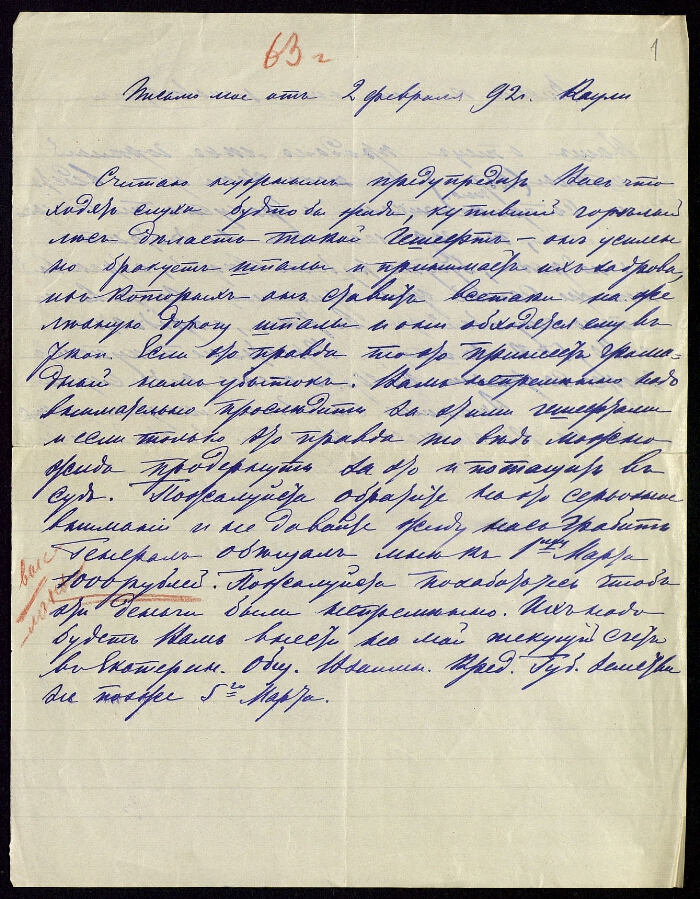 63 г
1
Письмо мое отъ 2 февраля 92г.
Считаю нужнымъ предупредить Васъ что
ходятъ слухи будто бы жидъ, купившій горѣлый
лѣсъ дѣлаетъ такой гешефтъ – онъ усилен
но бракуетъ шпалы и принимаетъ ихъ за дрова,
изъ которыхъ онъ ставитъ всетаки на же
лѣзную дорогу шпалы и они обходятся ему въ
7 коп. Если это правда то это принесетъ грома-
дный намъ убытокъ. Вамъ непремѣнно надо
внимательно прослѣдить за этими гешефтами
и если только это правда то вѣдь можно
жида продернуть за это и потащить въ
судъ. Пожалуйста обратите на это серьозное
вниманіе и не давайте жиду насъ грабить
Генералъ обѣщалъ мнѣ къ 1му Марта
7000 рублей. Пожалуйста похлопочите чтобъ
эти деньги были непремѣнно. Ихъ надо
будетъ Вамъ внести на мой текущій счетъ
въ Екатерин. Общ. Взаимн. Кред. Губ. Земства
не позже 5го Марта.